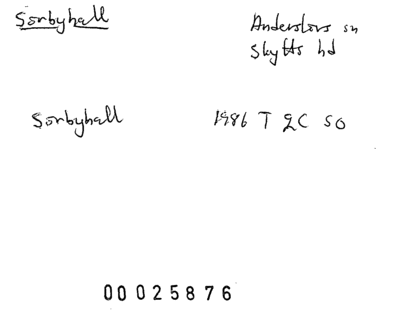 Sörbyhall
Anderslövs sn
Skytts hd
Sörbyhall
1986 T 2C SO
00025876